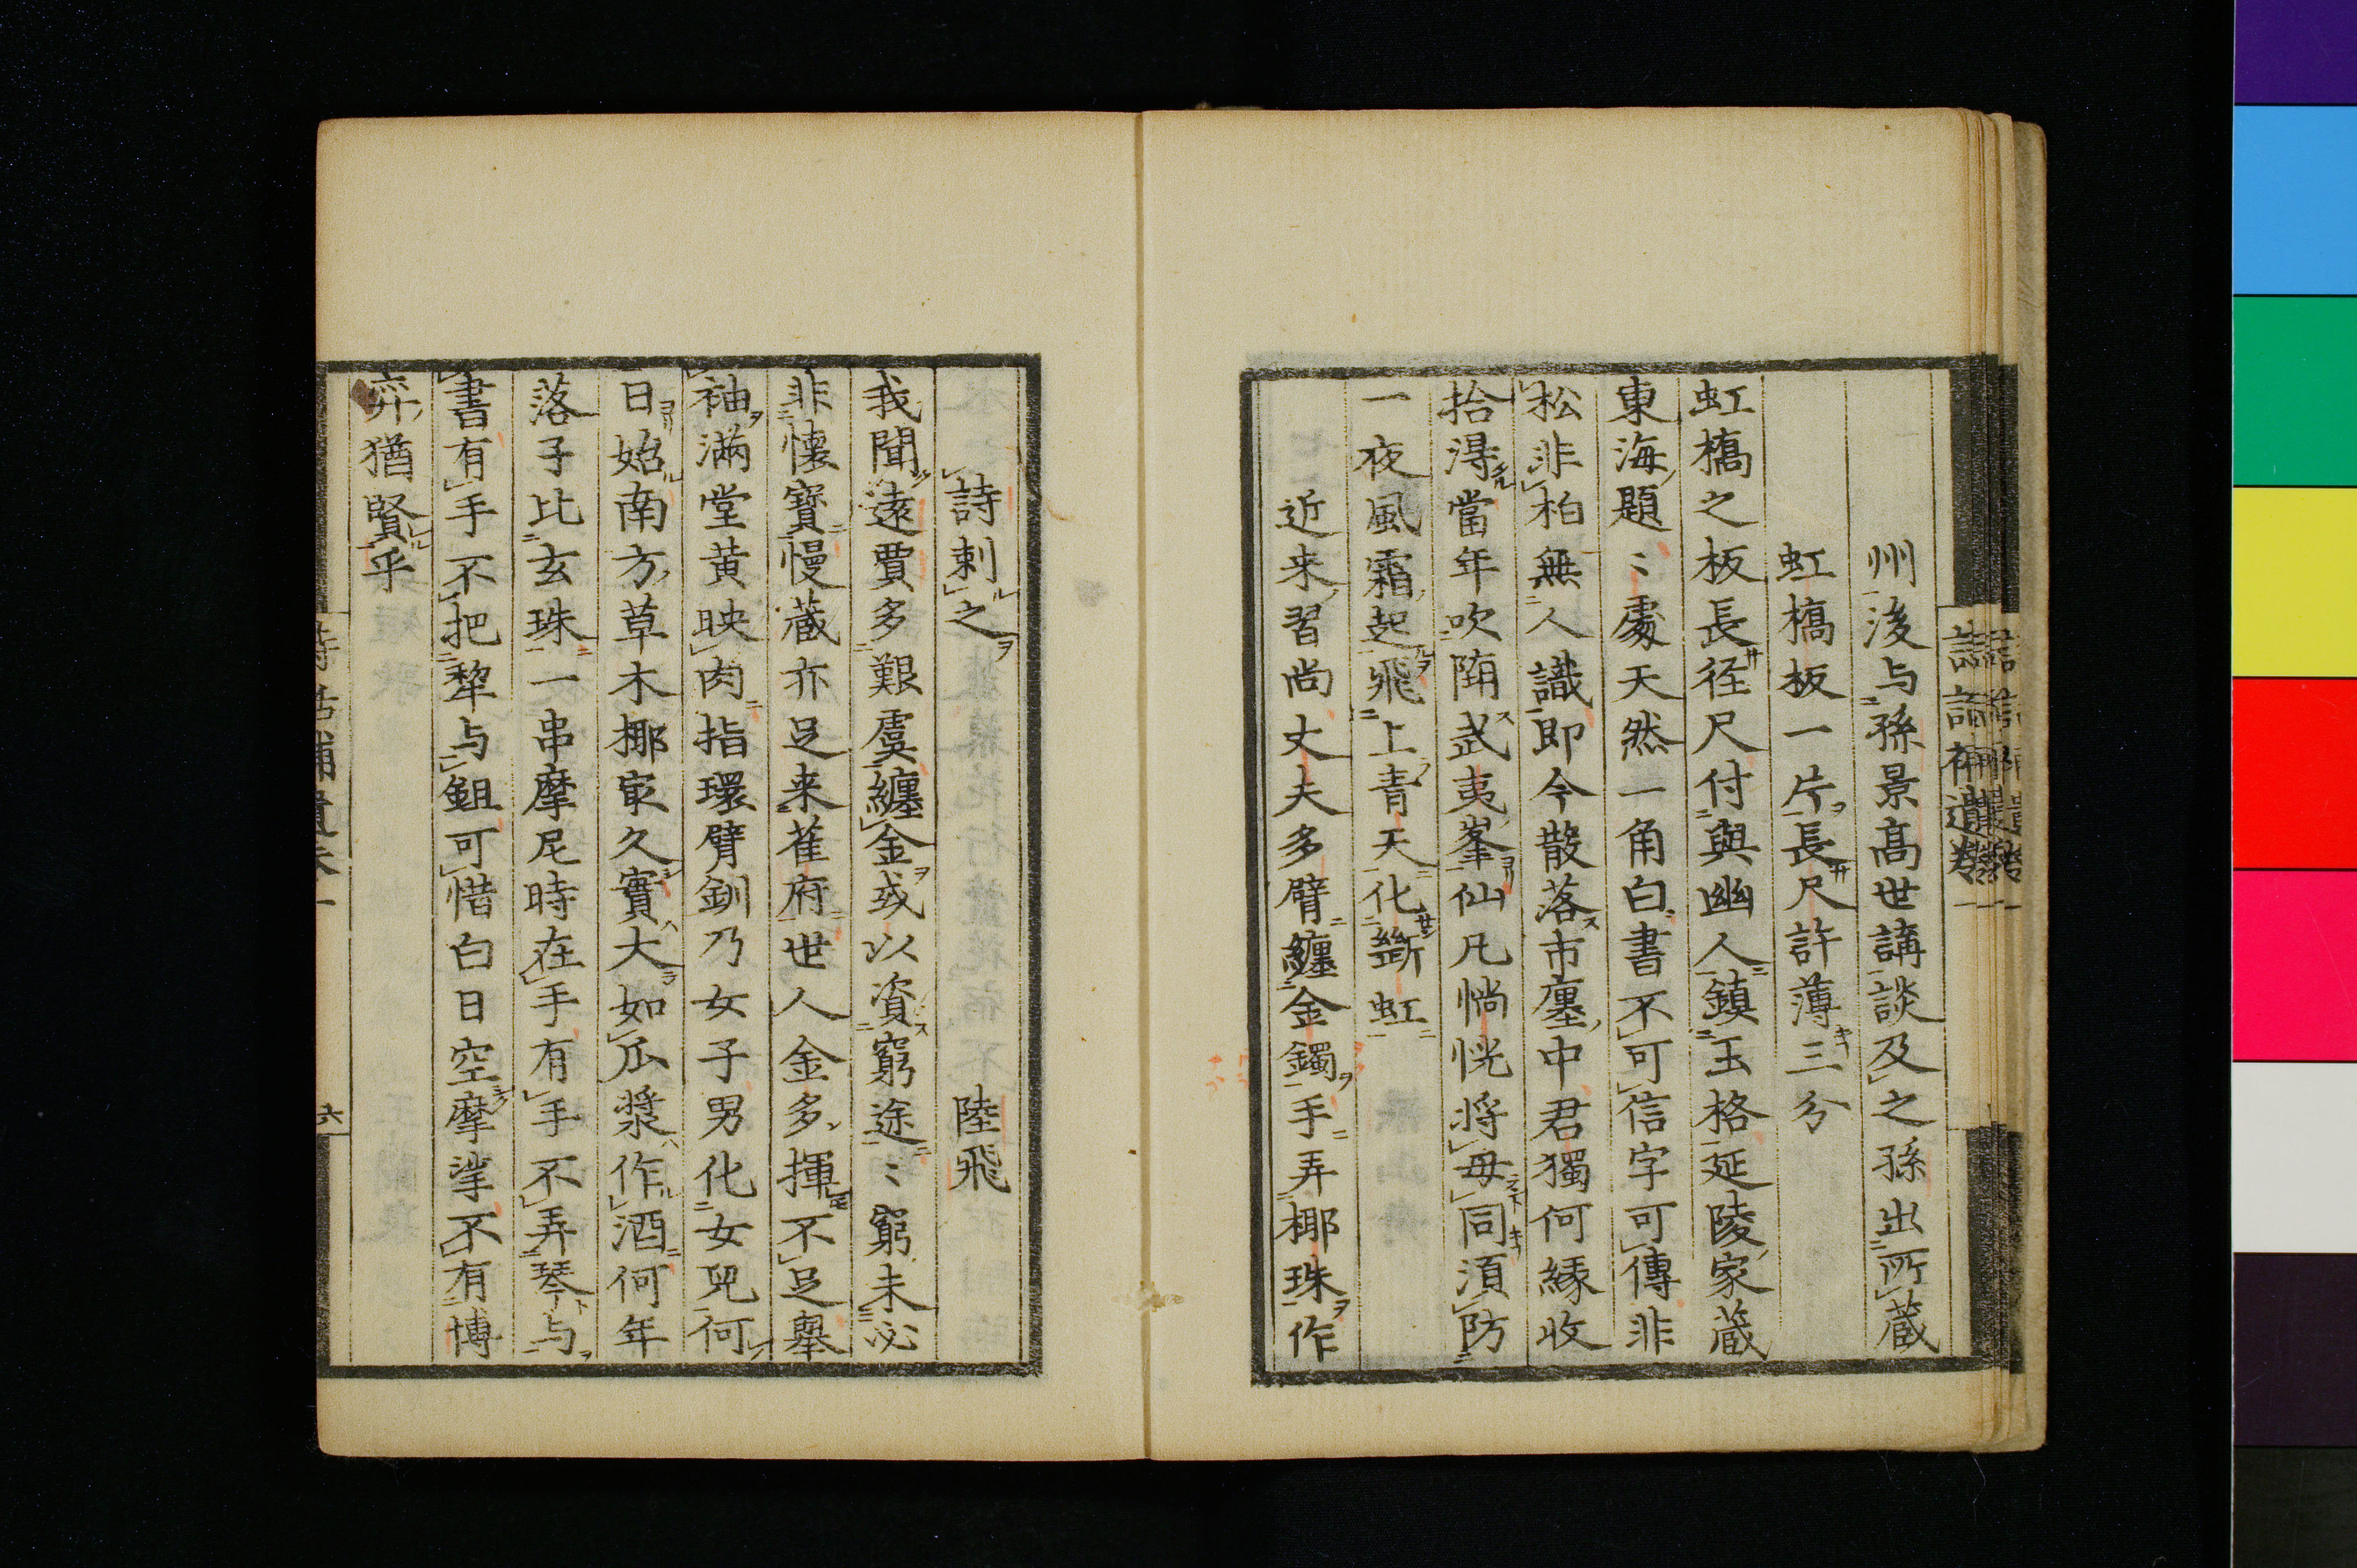 州後与孫景高世講談及之孫出所蔵
虹橋板一片長尺許薄三分
虹橋之板長径尺付與幽人鎮玉格延陵家蔵
東海題〻處天然一角白書不可信字可傳非
松非柏無人識即今散落市廛中君獨何縁收
拾得當年吹隋武夷峯仙凡惝恍将毋同湏防
一夜風霜起飛上青天化斷虹
近来習尚丈夫多臂纏金鐲手弄椰珠作
詩刺之 陸飛
我聞遠賈多艱虞纏金或以資窮途〻窮未必
非懐寶慢蔵亦足来萑府世人金多揮不足擧
袖滿堂黄映肉指環臂釧乃女子男化女兒何
日始南方草木椰㝡久實大如瓜漿作酒何年
落子比玄珠一串摩尼時在手有手不弄琴与
書有手不把犂与鉏可惜白日空摩挲不有博
弈猶賢乎
詩話補遺卷一
六